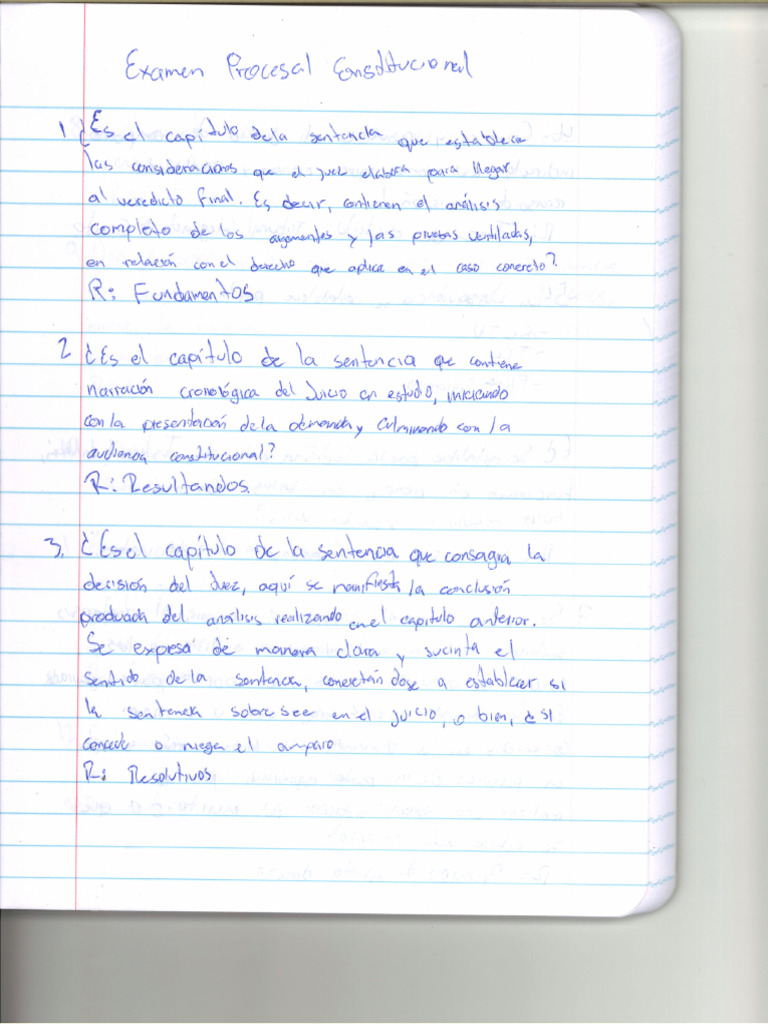 Examen Procesal Constitucional
1 ¿Es el capítulo de la sentencia que establece
las consideraciones que el juez elabora para llegar
al veredicto final. Es decir, contienen el análisis
completo de los argementos y las pruebas ventiladas,
en relación con el derecho que aplica en el caso concreto?
R: Fundamentos
2 ¿Es el capítulo de la sentencia que contiene
narración cronológica del juicio en estudio, iniciando
con la presentación de la demanda y culminando con la
audiencia constitucional?
R: Resultandos.
3. ¿Es el capítulo de la sentencia que consagra la
decisión del Juez, aquí se manifiesta la conclusión
producida del análisis realizando en el capitulo anterior.
Se expresa de manera clara y sucinta el
sentido de la sentencia, concretán dose a establecer si
la sentencia sobre see en el juicio, o bien, ¿si
concede o niega el amparo
R: Resolutivos